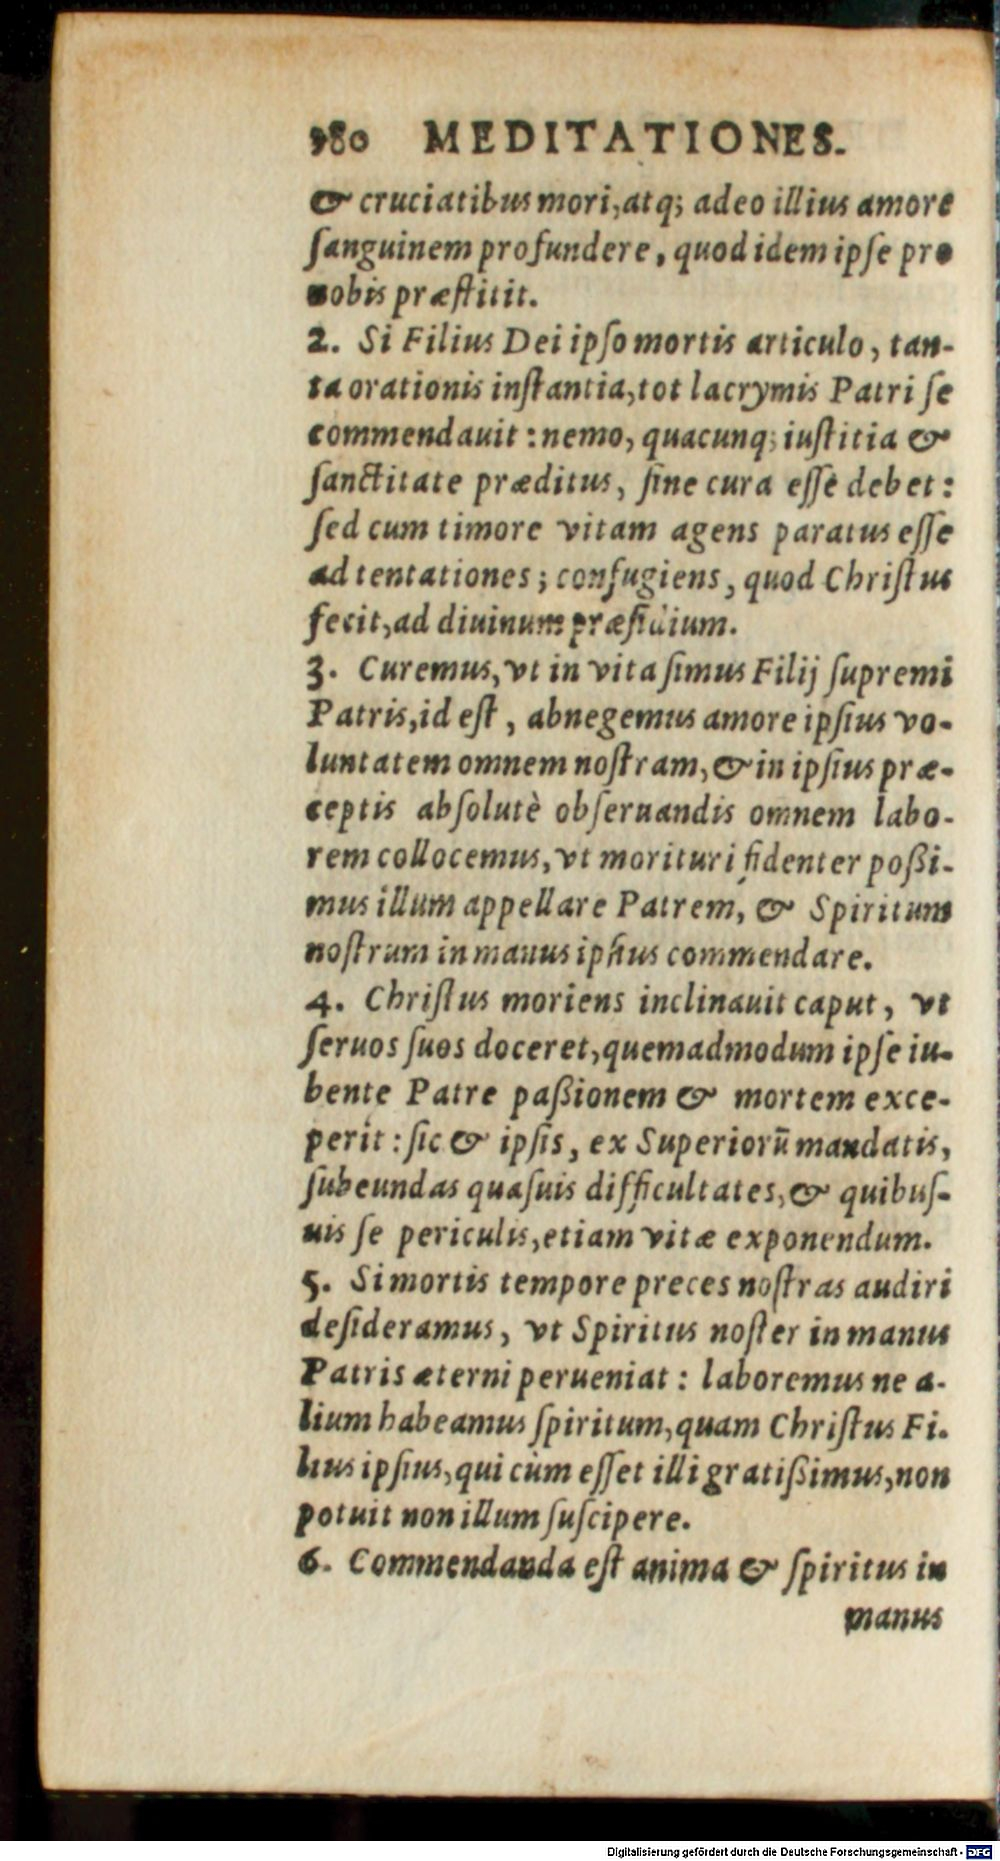 980 MEDITATIONES.
& cruciatibus mori, atq; adeo illius amore
ſanguinem profundere, quod idem ipſe pro
nobis præſtitit.
2. Si Filius Dei ipſo mortis articulo, tan-
ta orationis inſtantia, tot lacrymis Patri ſe
commendauit: nemo, quacunq; iuſtitia &
ſanctitate præditus, ſine cura eſſe debet:
ſed cum timore vitam agens paratus eſſe
ad tentationes; confugiens, quod Chriſtus
fecit, ad diuinum præſidium.
3. Curemus, vt in vita ſimus Filij ſupremi
Patris, id eſt, abnegemus amore ipſius vo-
luntatem omnem noſtram, & in ipſius præ-
ceptis abſolutè obſeruandis omnem labo-
rem collocemus, vt morituri fidenter poßi-
mus illum appellare Patrem, & Spiritum
noſtrum in manus ipſius commendare.
4. Chriſtus moriens inclinauit caput, vt
ſeruos ſuos doceret, quemadmodum ipſe iu-
bente Patre paßionem & mortem exce-
perit: ſic & ipſis, ex Superiorũ mandatis,
ſubeundas quaſuis difficultates, & quibuſ-
uis ſe periculis, etiam vitæ exponendum.
5. Si mortis tempore preces noſtras audiri
deſideramus, vt Spiritus noſter in manus
Patris æterni perueniat: laboremus ne a-
lium habeamus ſpiritum, quam Chriſtus Fi-
lius ipſius, qui cùm eſſet illi gratißimus, non
potuit non illum ſuſcipere.
6. Commendanda eſt anima & ſpiritus in
manus
Digitalisierung gefördert durch die Deutsche Forschungsgemeinschaft - DFG